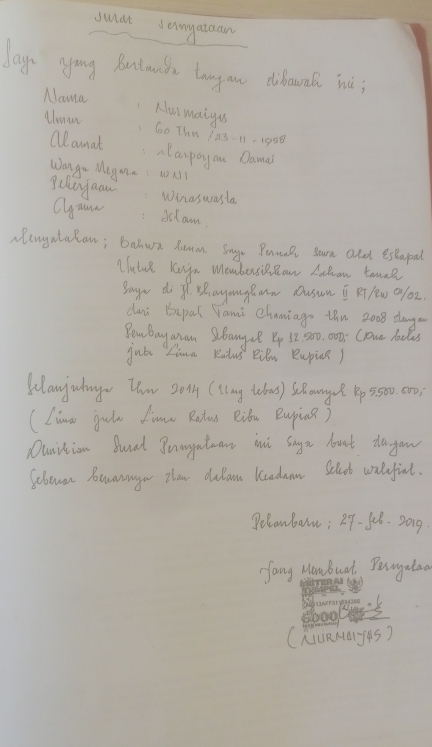 Surat Pernyataan
Saya yang bertanda tangan dibawah ini ;
Nama : Nurmaiyus
Umur : 60 Thn / 23 - 11 - 1958
Alamat : Marpoyan Damai
Warga Negara : WNI
Pekerjaan : Wiraswasta
Agama : Islam.
Menyatakan ; Bahwa benar Saya Pernah Sewa Alat Eskapat
Untuk Kerja Membersihkan Lahan tanah
Saya di Jl. Bhayangkara Dusun II RT/RW 01/02.
dari Bapak Tami Chaniago thn 2008 dengan
Pembayaran Sebanyak Rp 12.500.000;- (Dua belas
juta Lima Ratus Ribu Rupiah)
Selanjutnya Thn 2014 (Ulang tebas) Sebanyak Rp 5.500.000;-
(Lima juta Lima Ratus Ribu Rupiah)
Demikian Surat Pernyataan ini Saya buat dengan
Sebenar benarnya dan dalam Keadaan Sehat walafiat.
Pekanbaru ; 27 - feb - 2019.
Yang Membuat Pernyataa
METERAI
TEMPEL
6000
(NURMAIYAS)